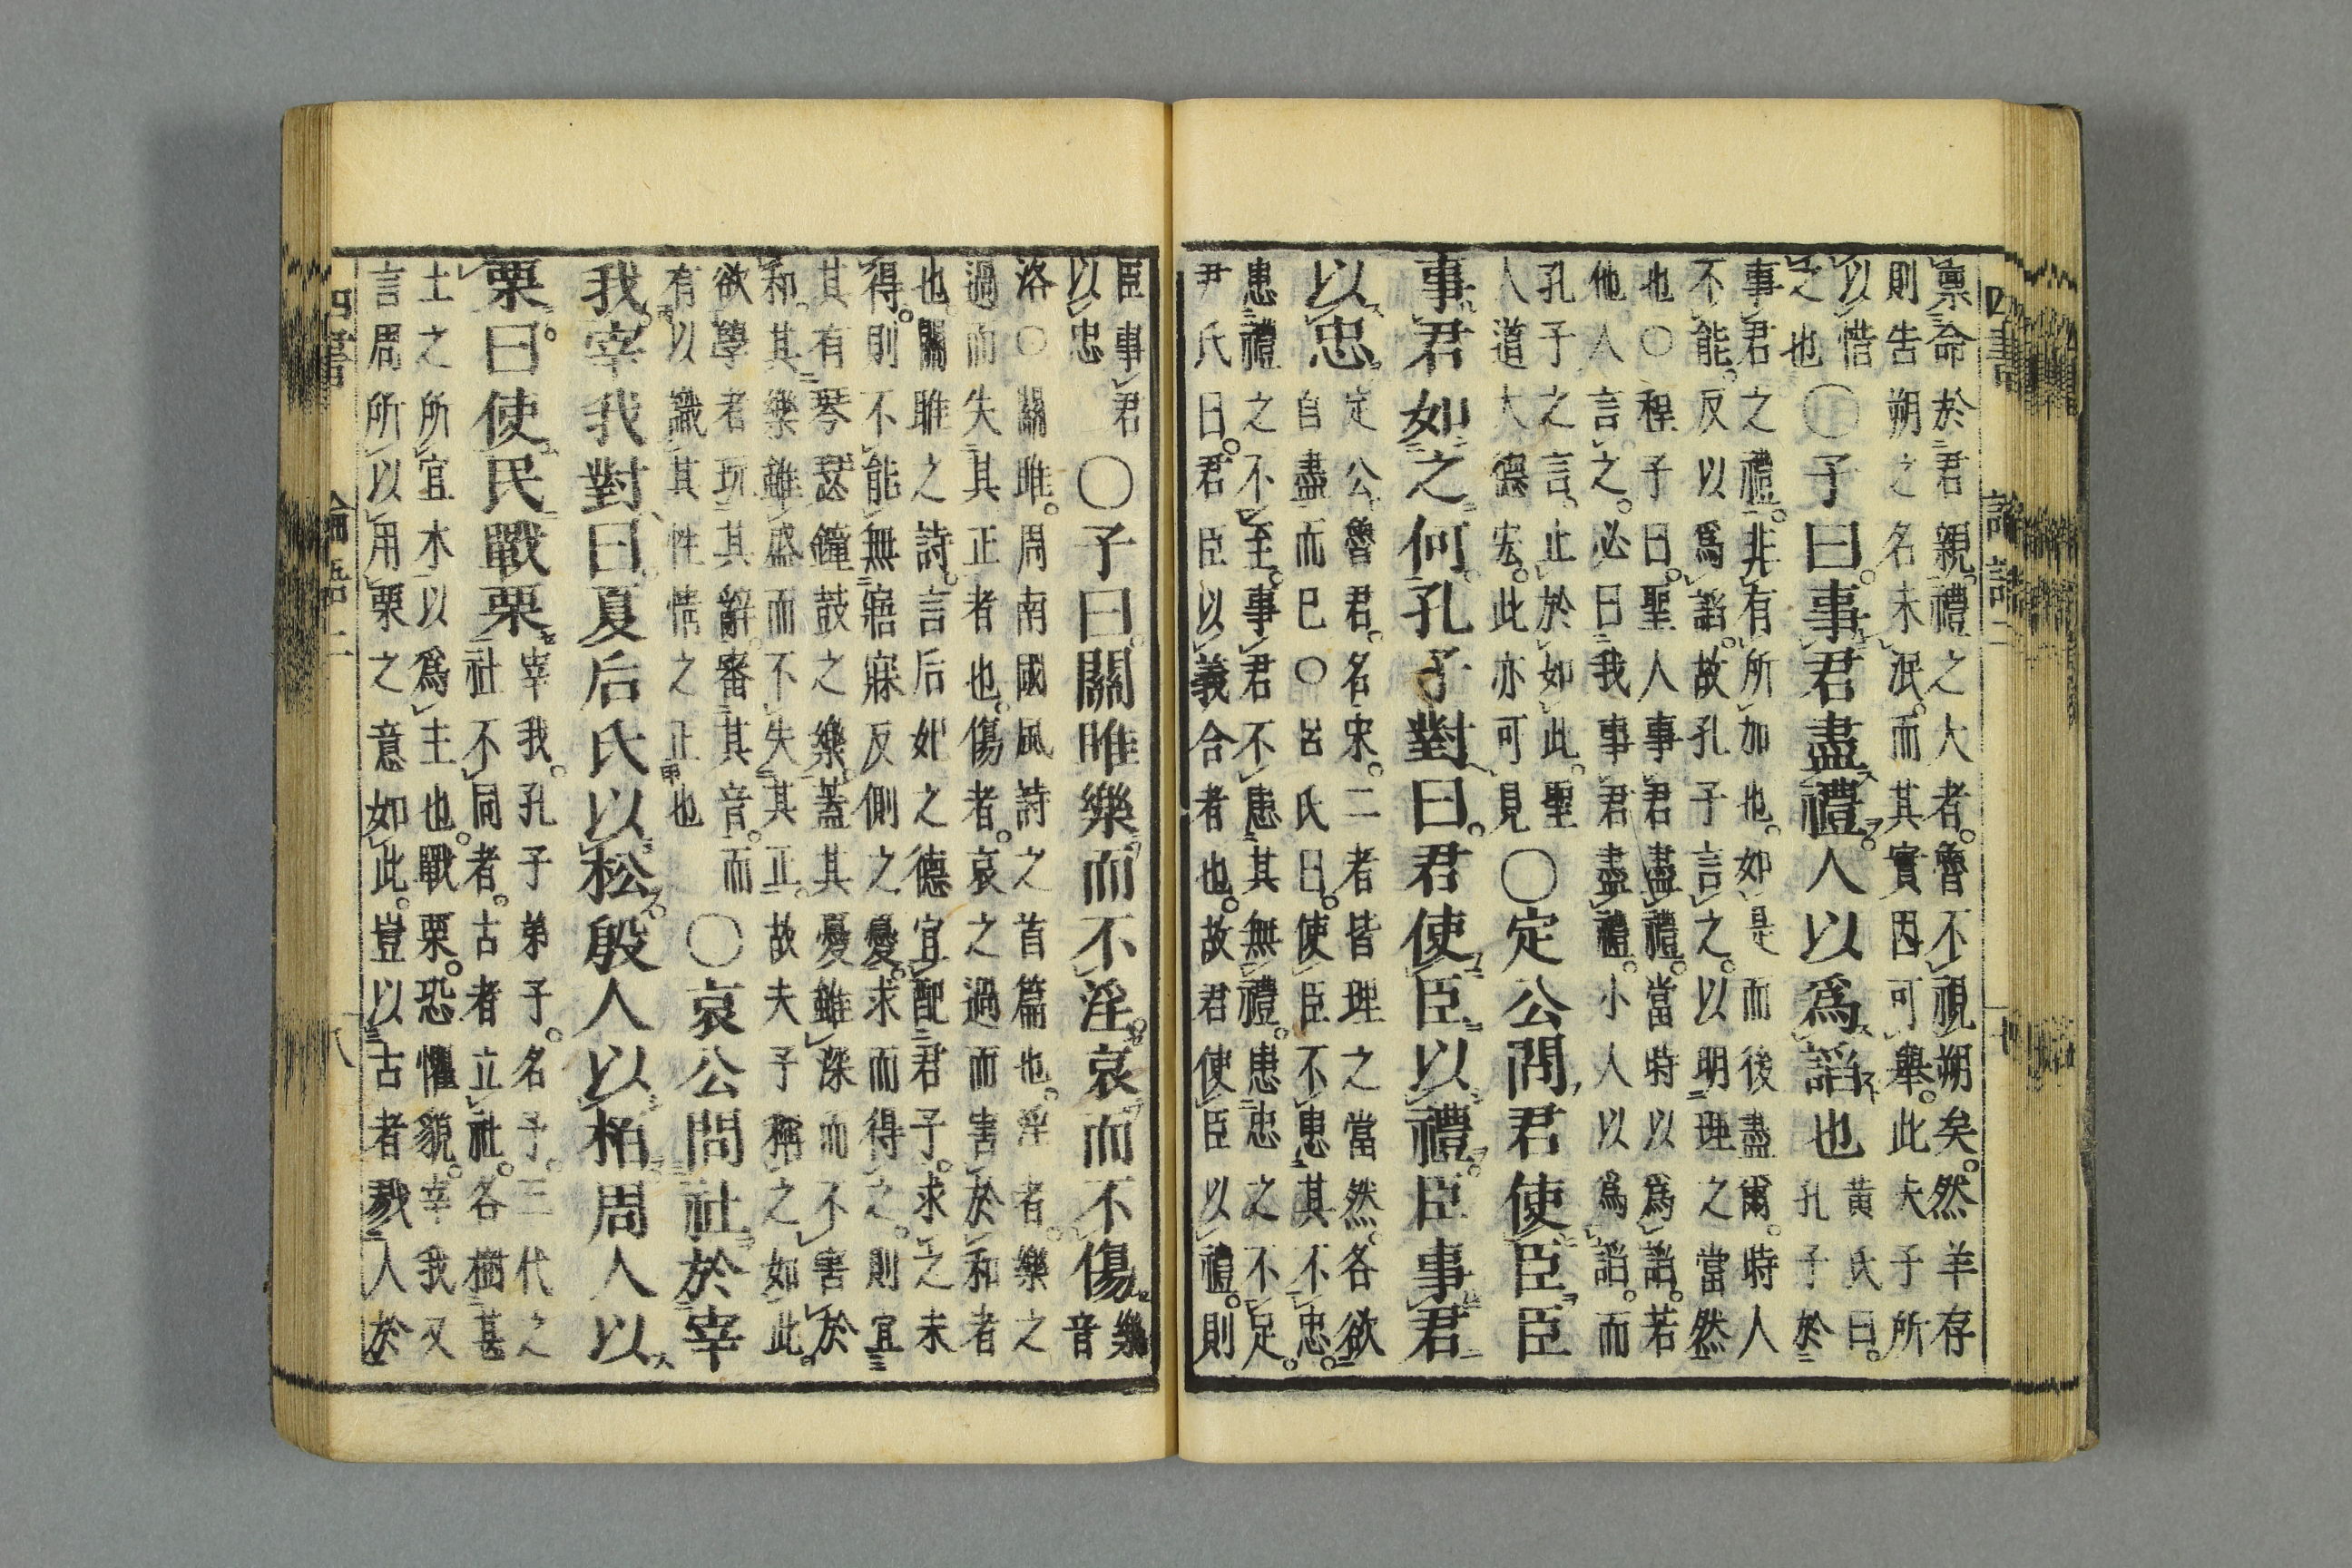 稟命於君親禮之大者。魯不視朔矣。然羊存
則告朔之名未泯。而其實因可舉。此夫子所
以惜
之也
○子曰。事君盡禮。人以爲諂也
黄氏曰。
孔子於
事君之禮。非有所加也。如是而後盡爾。時人
不能。反以爲諂。故孔子言之。以明理之當然
也○程子曰。聖人事君盡禮。當時以爲諂。若
他人言之。必曰我事君盡禮。小人以爲諂。而
孔子之言。止於如此。聖
人道大德宏。此亦可見
○定公問君使臣臣
事君如之何。孔子對曰。君使臣以禮。臣事君
以忠。
定公魯君。名宋。二者皆理之當然。各欲
自盡而已○呂氏曰。使臣不患其不忠。
患禮之不至。事君不患其無禮。患忠之不足。
尹氏曰。君臣以義合者也。故君使臣以禮。則
臣事君
以忠
○子曰。關雎樂而不淫。哀而不傷
樂
音
洛○關雎。周南國風詩之首篇也。淫者。樂之
過而失其正者也。傷者。哀之過而害於和者
也。關雎之詩。言后妃之德。宜配君子。求之未
得。則不能無寤寐反側之憂。求而得之。則宜
其有琴瑟鐘鼓之樂。蓋其憂雖深而不害於
和。其樂雖盛而不失其正。故夫子稱之如此。
欲學者玩其辭。審其音。而
有以識其性情之正也
○哀公問社於宰
我。宰我對曰。夏后氏以松。殷人以栢。周人以
栗。曰。使民戰栗。
宰我。孔子弟子。名予。三代之
社不同者。古者立社。各樹其
土之所宜木以爲主也。戰栗。恐懼貌。宰我又
言周所以用栗之意如此。豈以古者戮人於
四書
論語二
八